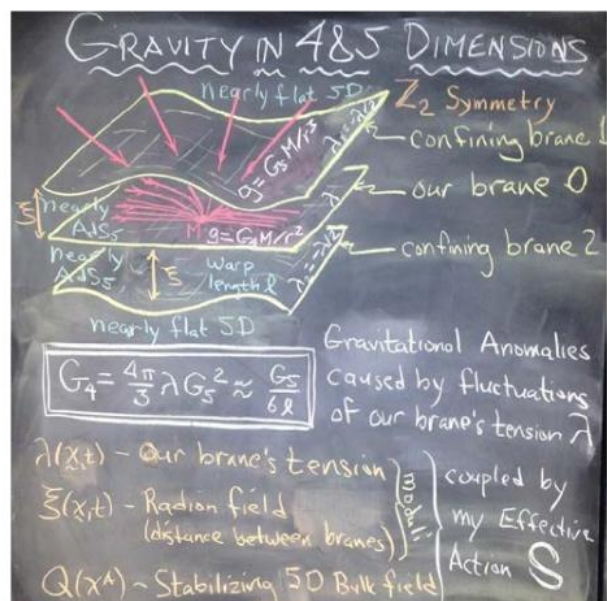 GRAVITY IN 4&5 DIMENSIONS
nearly flat 5D
Z₂ Symmetry
confining brane 1
g = G₅M/r³
our brane 0
ξ
nearly AdS₅
M
g=G₄M/r²
λ
confining brane 2
nearly AdS₅
ξ
Warp length ℓ
nearly flat 5D
G₄ = 4π/3 λ G₅² ≈ G₅/6ℓ
Gravitational Anomalies
caused by fluctuations
of our brane's tension λ
λ(x,t) – Our brane's tension
ξ(x,t) – Radion field
(distance between branes)
Moduli
Q(xᴬ) – Stabilizing 5D Bulk field
coupled by
my Effective
Action S